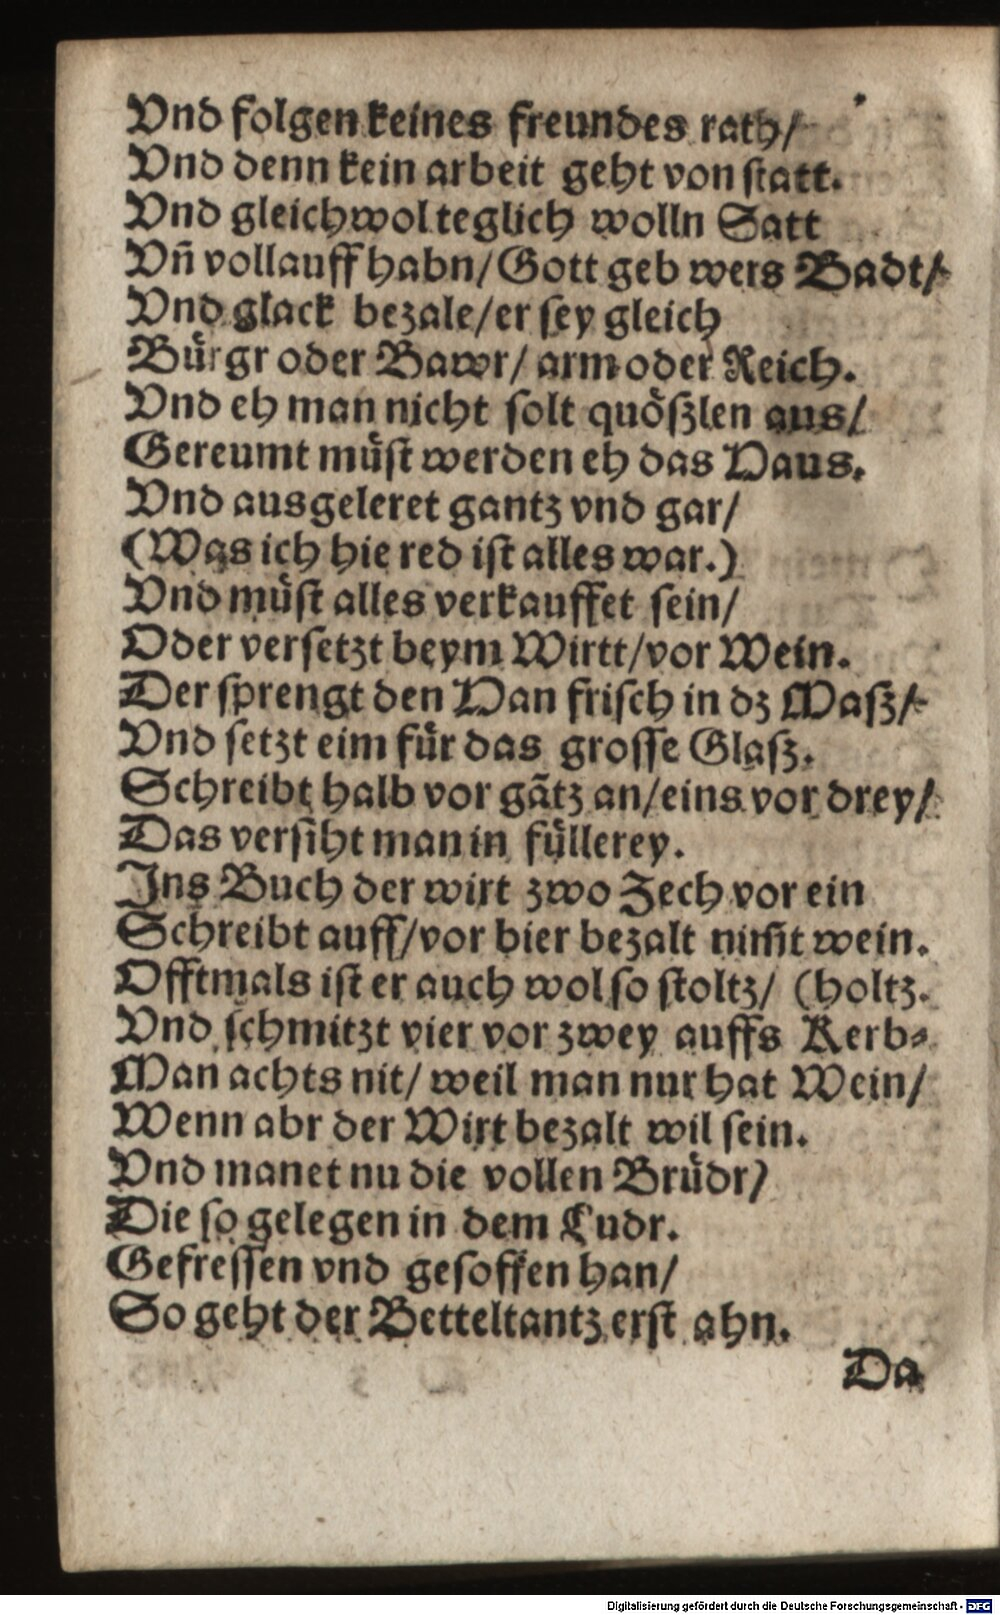 Vnd folgen keines freundes rath/
Vnd denn kein arbeit geht von statt.
Vnd gleichwol teglich wolln Satt
Vñ vollauff habn/Gott geb wers Badt/
Vnd glack bezale/er sey gleich
Bürgr oder Bawr/ arm oder Reich.
Vnd eh man nicht solt quößlen aus/
Gereumt müst werden eh das Haus.
Vnd ausgeleret gantz vnd gar/
(Was ich hie red ist alles war.)
Vnd müst alles verkauffet sein/
Oder versetzt beym Wirtt/vor Wein.
Der sprengt den Han frisch in dz Maß/
Vnd setzt eim für das grosse Glaß.
Schreibt halb vor gãtz an/eins vor drey/
Das versiht man in füllerey.
Ins Buch der wirt zwo Zech vor ein
Schreibt auff/vor bier bezalt nim̃t wein.
Offtmals ist er auch wol so stoltz/ (holtz.
Vnd schmitzt vier vor zwey auffs Kerb-
Man achts nit/ weil man nur hat Wein/
Wenn abr der Wirt bezalt wil sein.
Vnd manet nu die vollen Brüdr/
Die so gelegen in dem Ludr.
Gefressen vnd gesoffen han/
So geht der Betteltantz erst ahn.
Da
Digitalisierung gefördert durch die Deutsche Forschungsgemeinschaft - DFG